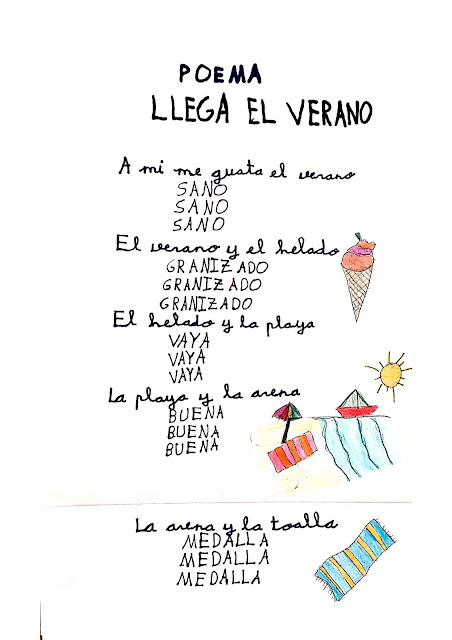 POEMA
LLEGA EL VERANO
A mi me gusta el verano
SANO
SANO
SANO
El verano y el helado
GRANIZADO
GRANIZADO
GRANIZADO
El helado y la playa
VAYA
VAYA
VAYA
La playa y la arena
BUENA
BUENA
BUENA
La arena y la toalla
MEDALLA
MEDALLA
MEDALLA